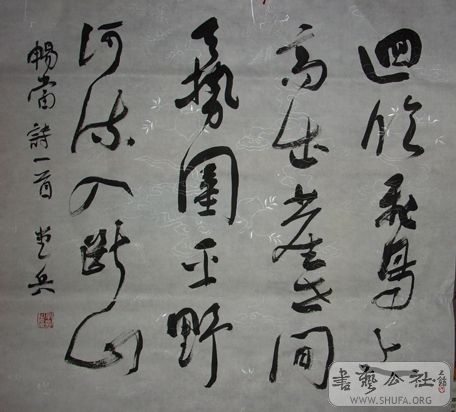 迥临飛鳥上
高出塵世间
天勢圍平野
河流入斷山
暢當詩一首 兵
書藝公社
WWW.SHUFA.ORG